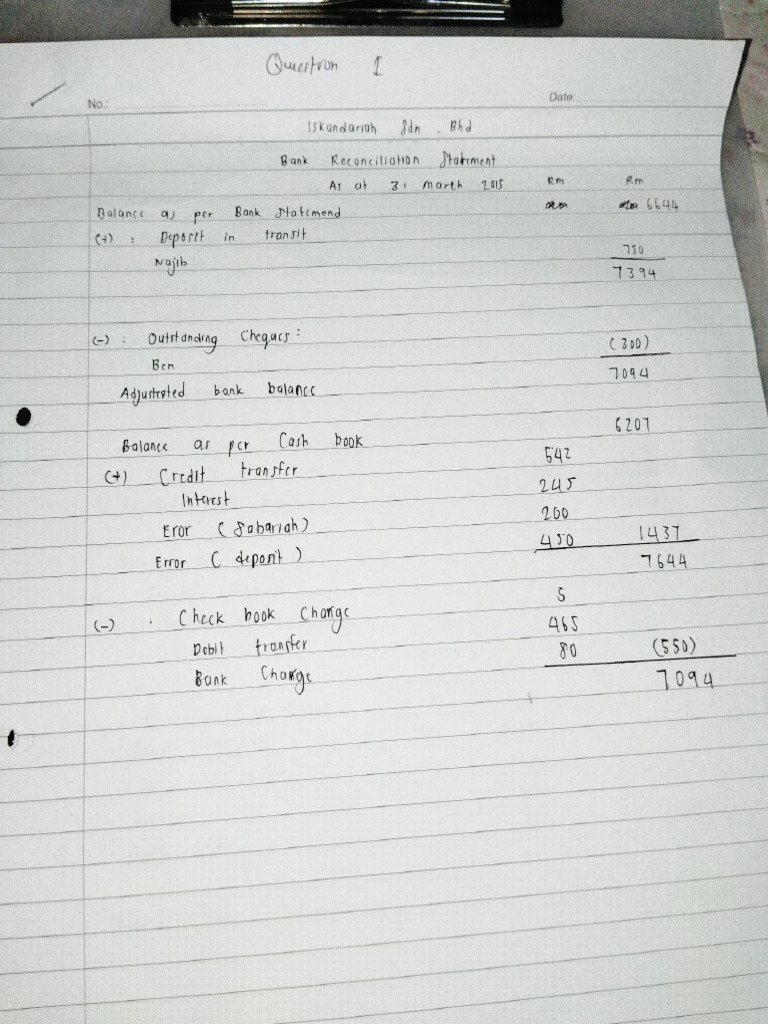 Question 1
No.: Date:
Iskandariah Sdn. Bhd
Bank Reconciliation Statement
As at 31 March 2015 Rm Rm
Balance as per Bank Statemend 6644
(+) : Deposit in transit
Najib 750
7394
(-) : Outstanding Cheques :
Ben (300)
Adjustested bank balance 7094
Balance as per Cash book 6207
(+) Credit transfer 542
Interest 245
Eror (Sabariah) 200
Error (deposit) 450 1437
7644
(-) : Check book Charge 5
Debit transfer 465
Bank Charge 80 (550)
7094